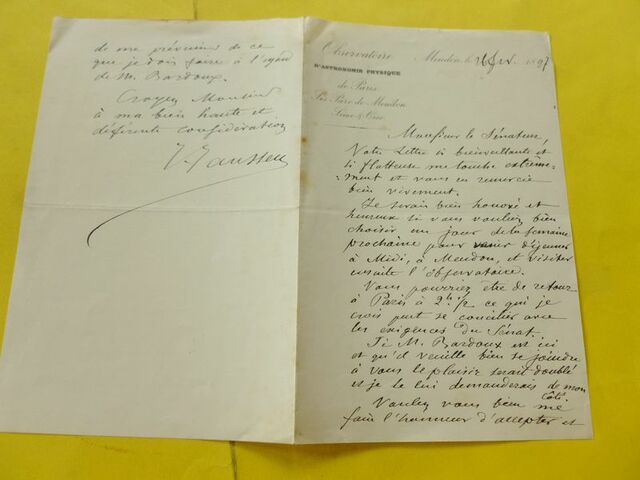 Observatoire
D'ASTRONOMIE PHYSIQUE
de Paris
Sis Parc de Meudon
Seine & Oise
Meudon, le 26 fév. 1897
Monsieur le Sénateur,
Votre Lettre si bienveillante et
si flatteuse me touche extrême-
ment et vous en remercie
bien vivement.
Je serais bien honoré et
heureux si vous vouliez bien
choisir un jour de la semaine
prochaine pour venir déjeuner
à Midi, à Meudon, et visiter
ensuite l'Observatoire.
Vous pourriez être de retour
à Paris à 2h 1/2 ce qui je
crois peut se concilier avec
les exigences du Sénat.
Si M. Bardoux est ici
et qu'il veuille bien se joindre
à vous le plaisir serait doublé
et je le lui demanderais de mon
côté.
Voulez vous bien me
faire l'honneur d'accepter et
de me prévenir de ce
que je dois faire à l'égard
de M. Bardoux.
Croyez Monsieur
à ma bien haute et
déférente considération
J. Janssen